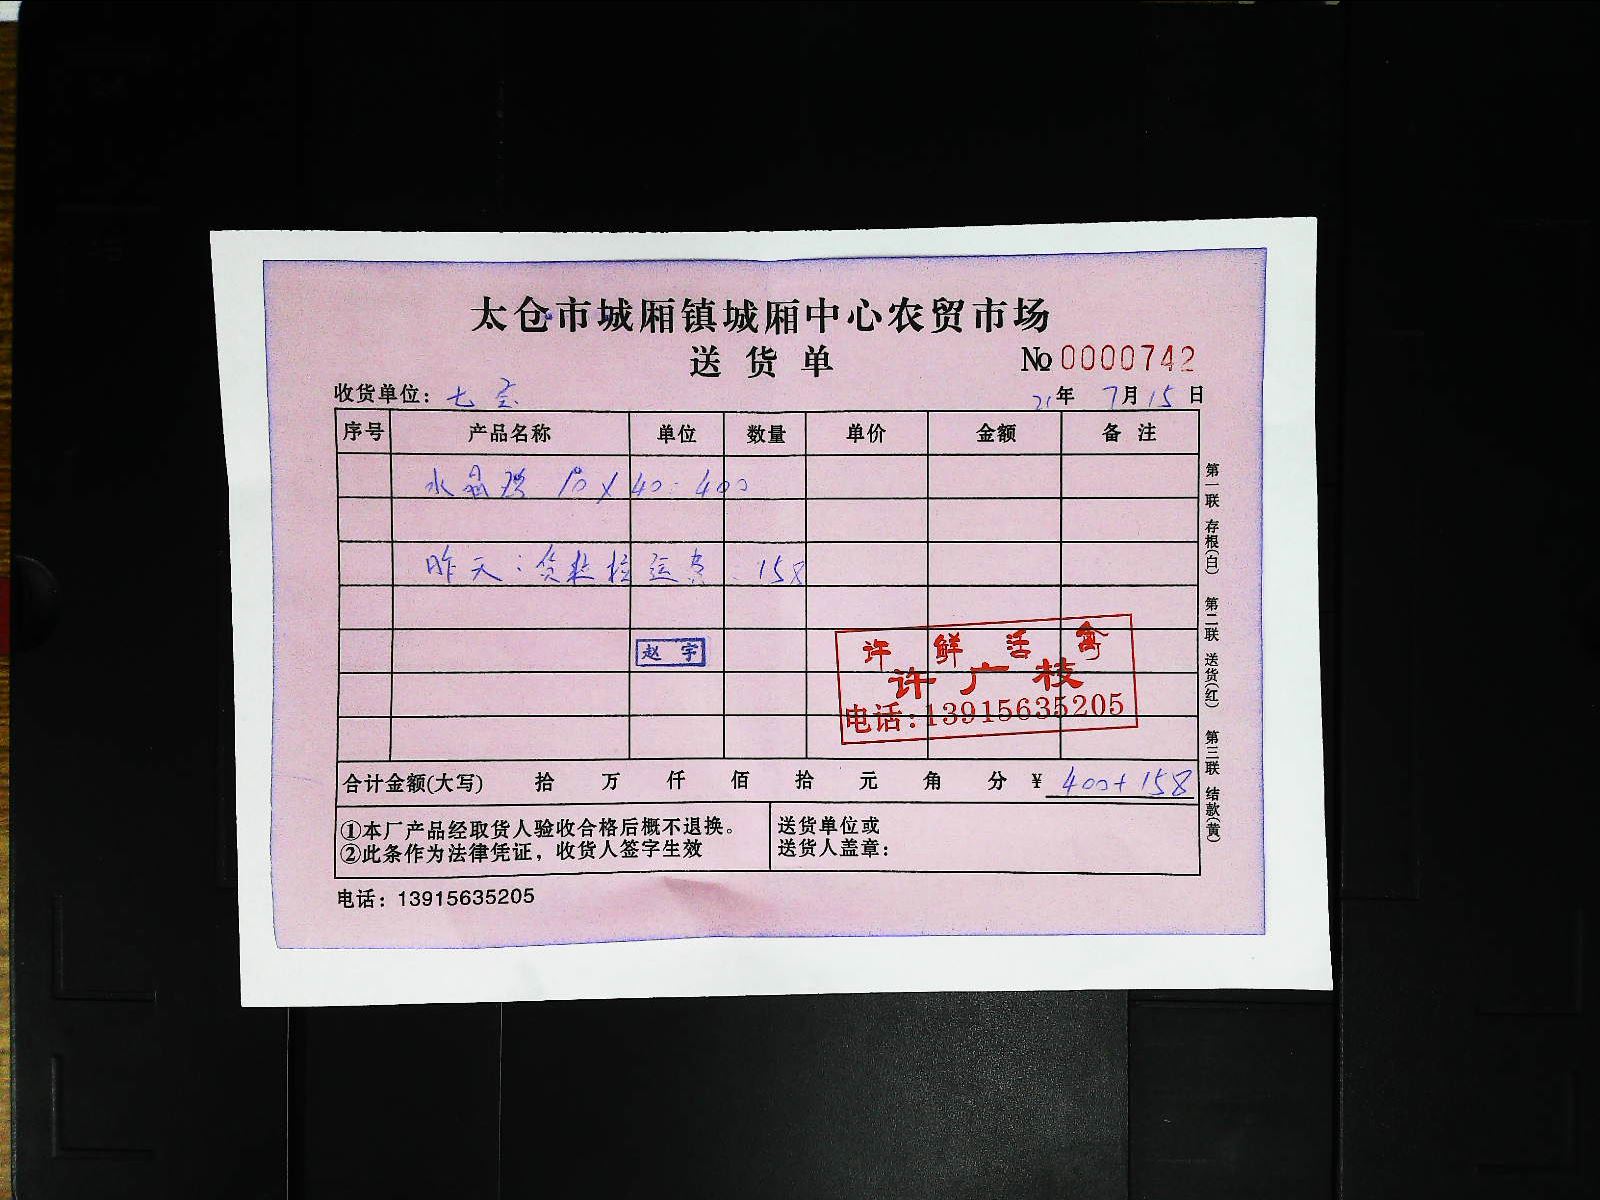 太仓市城厢镇城厢中心农贸市场
送货单 №0000742
收货单位：七宝 21年7月15日
序号 产品名称 单位 数量 单价 金额 备注
水晶 10×40=400
昨天：货 运费：158
赵宇
许鲜活禽
许广枝
电话：13915635205
合计金额(大写) 拾 万 仟 佰 拾 元 角 分 ¥400+158
①本厂产品经取货人验收合格后概不退换。
②此条作为法律凭证，收货人签字生效
送货单位或
送货人盖章：
电话：13915635205
第一联 存根(白) 第二联 送货(红) 第三联 结款(黄)